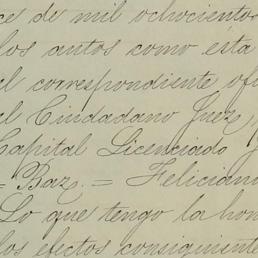 ce de mil ochocientos
los autos como está
el correspondiente ofi
al Ciudadano Juez,
Capital Licenciado
= Baz. = Feliciano
Lo que tengo la hon
los efectos consiguiente